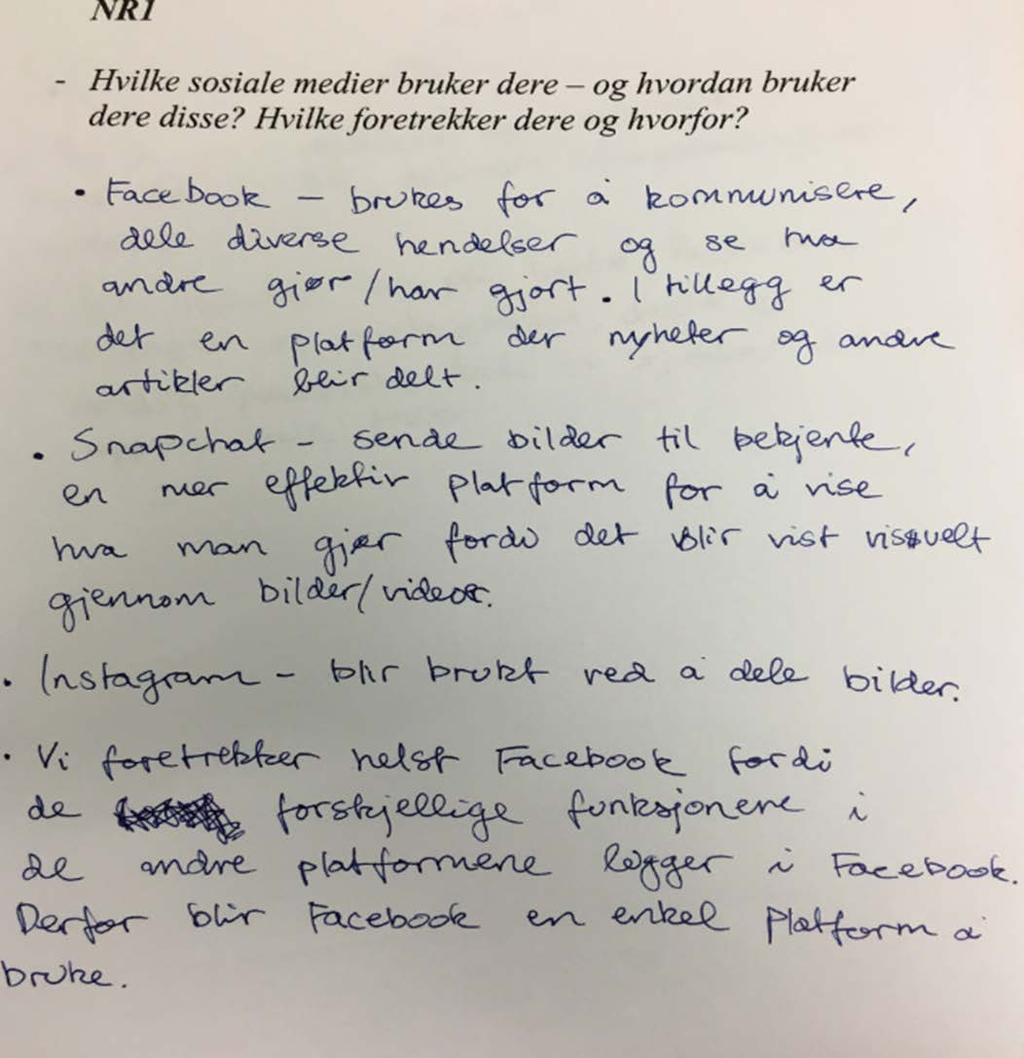 NR1
- Hvilke sosiale medier bruker dere – og hvordan bruker
dere disse? Hvilke foretrekker dere og hvorfor?
• Facebook – brukes for å kommunisere,
dele diverse hendelser og se hva
andre gjør/har gjort. I tillegg er
det en platform der nyheter og andre
artikler blir delt.
• Snapchat – sende bilder til bekjente,
en mer effektiv platform for å vise
hva man gjør fordi det blir vist visuelt
gjennom bilder/videor.
• Instagram – blir brukt ved å dele bilder.
• Vi foretrekker helst Facebook fordi
de forskjellige funksjonene i
de andre platformene ligger i Facebook.
Derfor blir Facebook en enkel platform å
bruke.